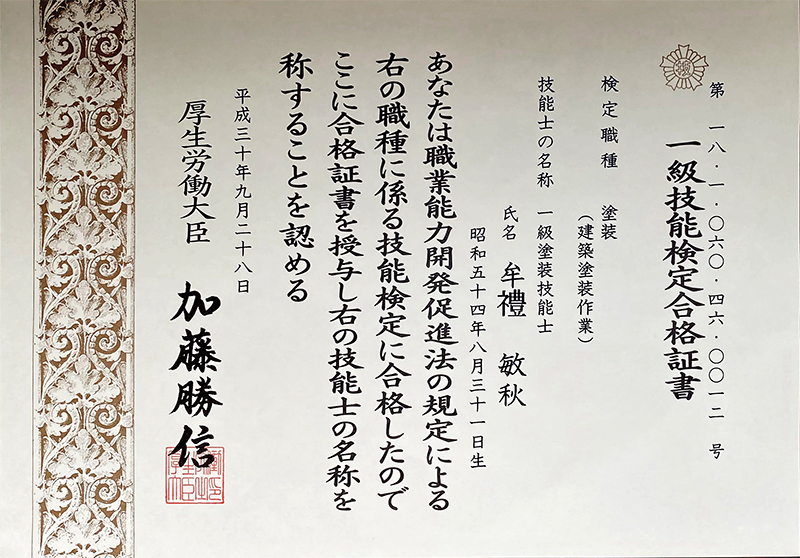 第 一八・一・〇六〇・四六・〇〇一二 号
一級技能検定合格証書
検定職種 塗装
(建築塗装作業)
技能士の名称 一級塗装技能士
氏名 牟禮 敏秋
昭和五十四年八月三十一日生
あなたは職業能力開発促進法の規定による
右の職種に係る技能検定に合格したので
ここに合格証書を授与し右の技能士の名称を
称することを認める
平成三十年九月二十八日
厚生労働大臣 加藤勝信